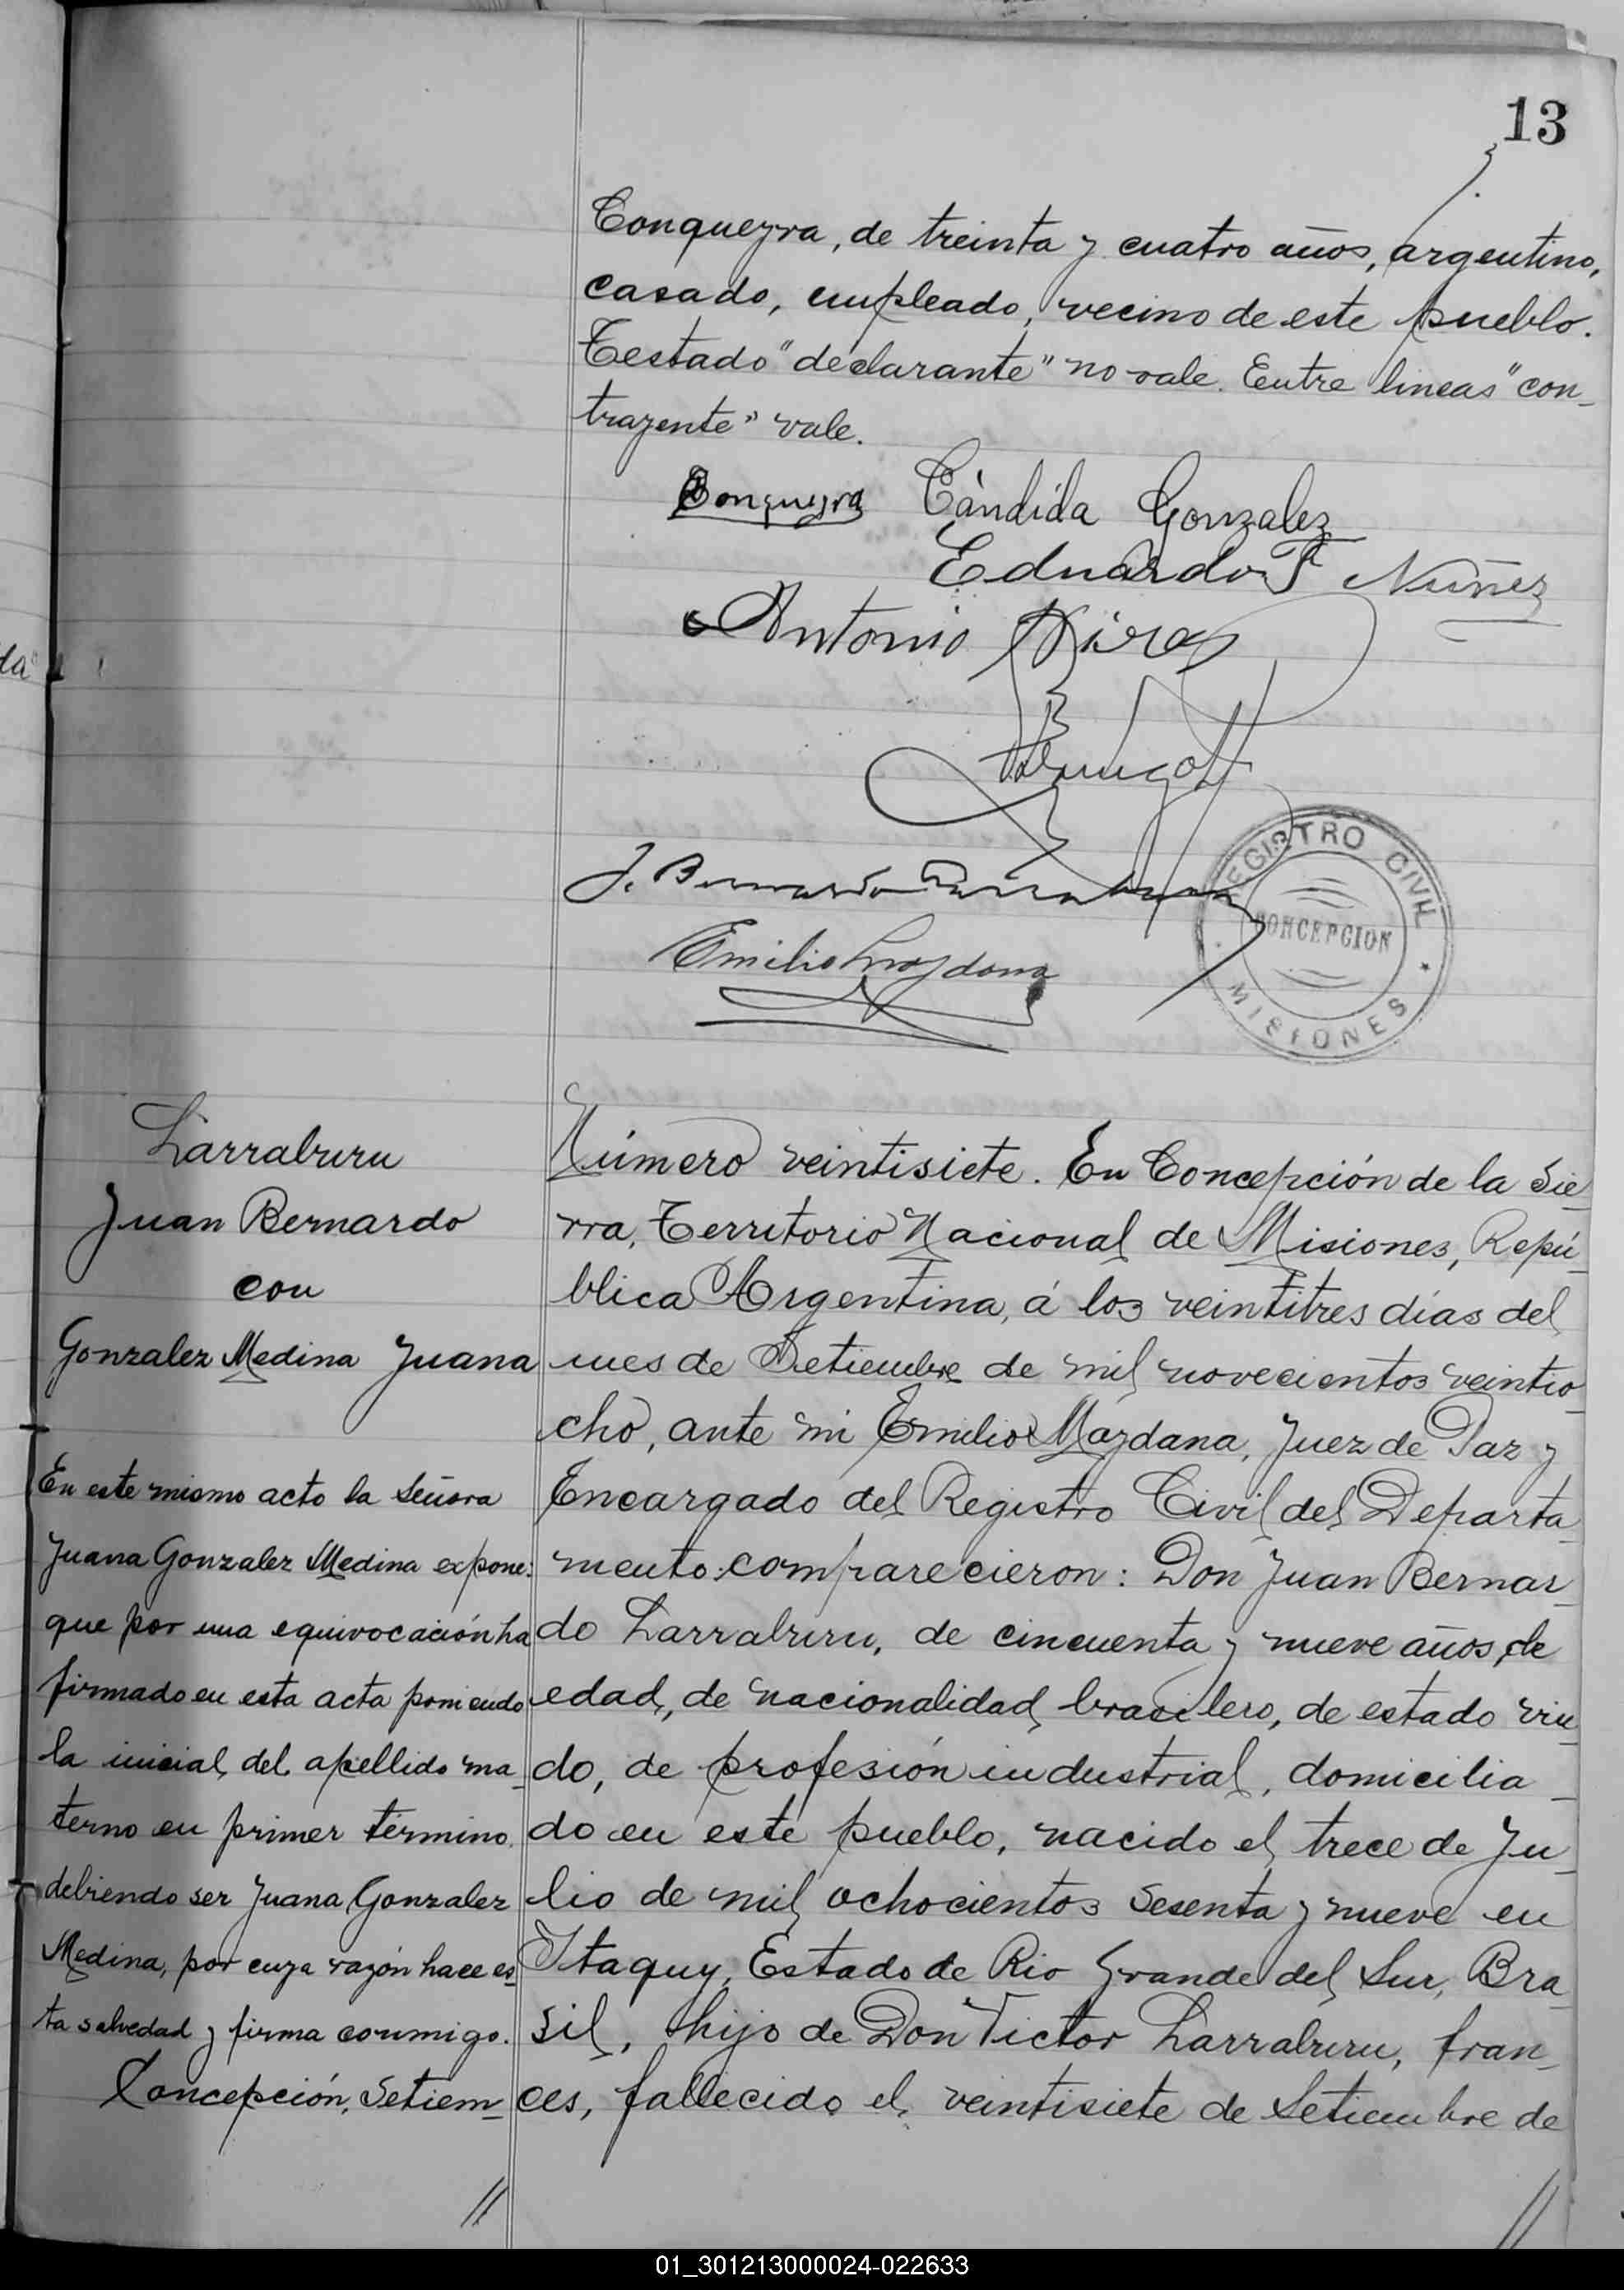 13
Conqueyra, de treinta y cuatro años, argentino,
casado, empleado, vecino de este pueblo.
Testado "declarante" no vale. Entre lineas "con-
trayente" vale.
Conqueyra Cándida Gonzalez
Eduardo F Nuñez
Antonio
J. Bernardo Larraburu
Emilio Maydana
REGISTRO CIVIL
CONCEPCION
MISIONES
Larraburu
Juan Bernardo
con
Gonzalez Medina Juana
En este mismo acto la Señora
Juana Gonzalez Medina expone:
que por una equivocación ha
firmado en esta acta poniendo
la inicial del apellido ma-
terno en primer término,
debiendo ser Juana Gonzalez
Medina, por cuya razón hace es-
ta salvedad y firma conmigo.
Concepción, Setiem-
//
Número veintisiete. En Concepción de la Sie-
rra, Territorio Nacional de Misiones, Repú-
blica Argentina, á los veintitres días del
mes de Setiembre de mil novecientos veintio-
cho, ante mi Emilio Maydana, Juez de Paz y
Encargado del Registro Civil del Departa-
mento comparecieron: Don Juan Bernar-
do Larraburu, de cincuenta y nueve años de
edad, de nacionalidad brasilero, de estado viu-
do, de profesión industrial, domicilia-
do en este pueblo, nacido el trece de Ju-
lio de mil ochocientos sesenta y nueve en
Itaquy, Estado de Rio Grande del Sur, Bra-
sil, hijo de Don Victor Larraburu, fran-
ces, fallecido el veintisiete de Setiembre de
//
01_301213000024-022633